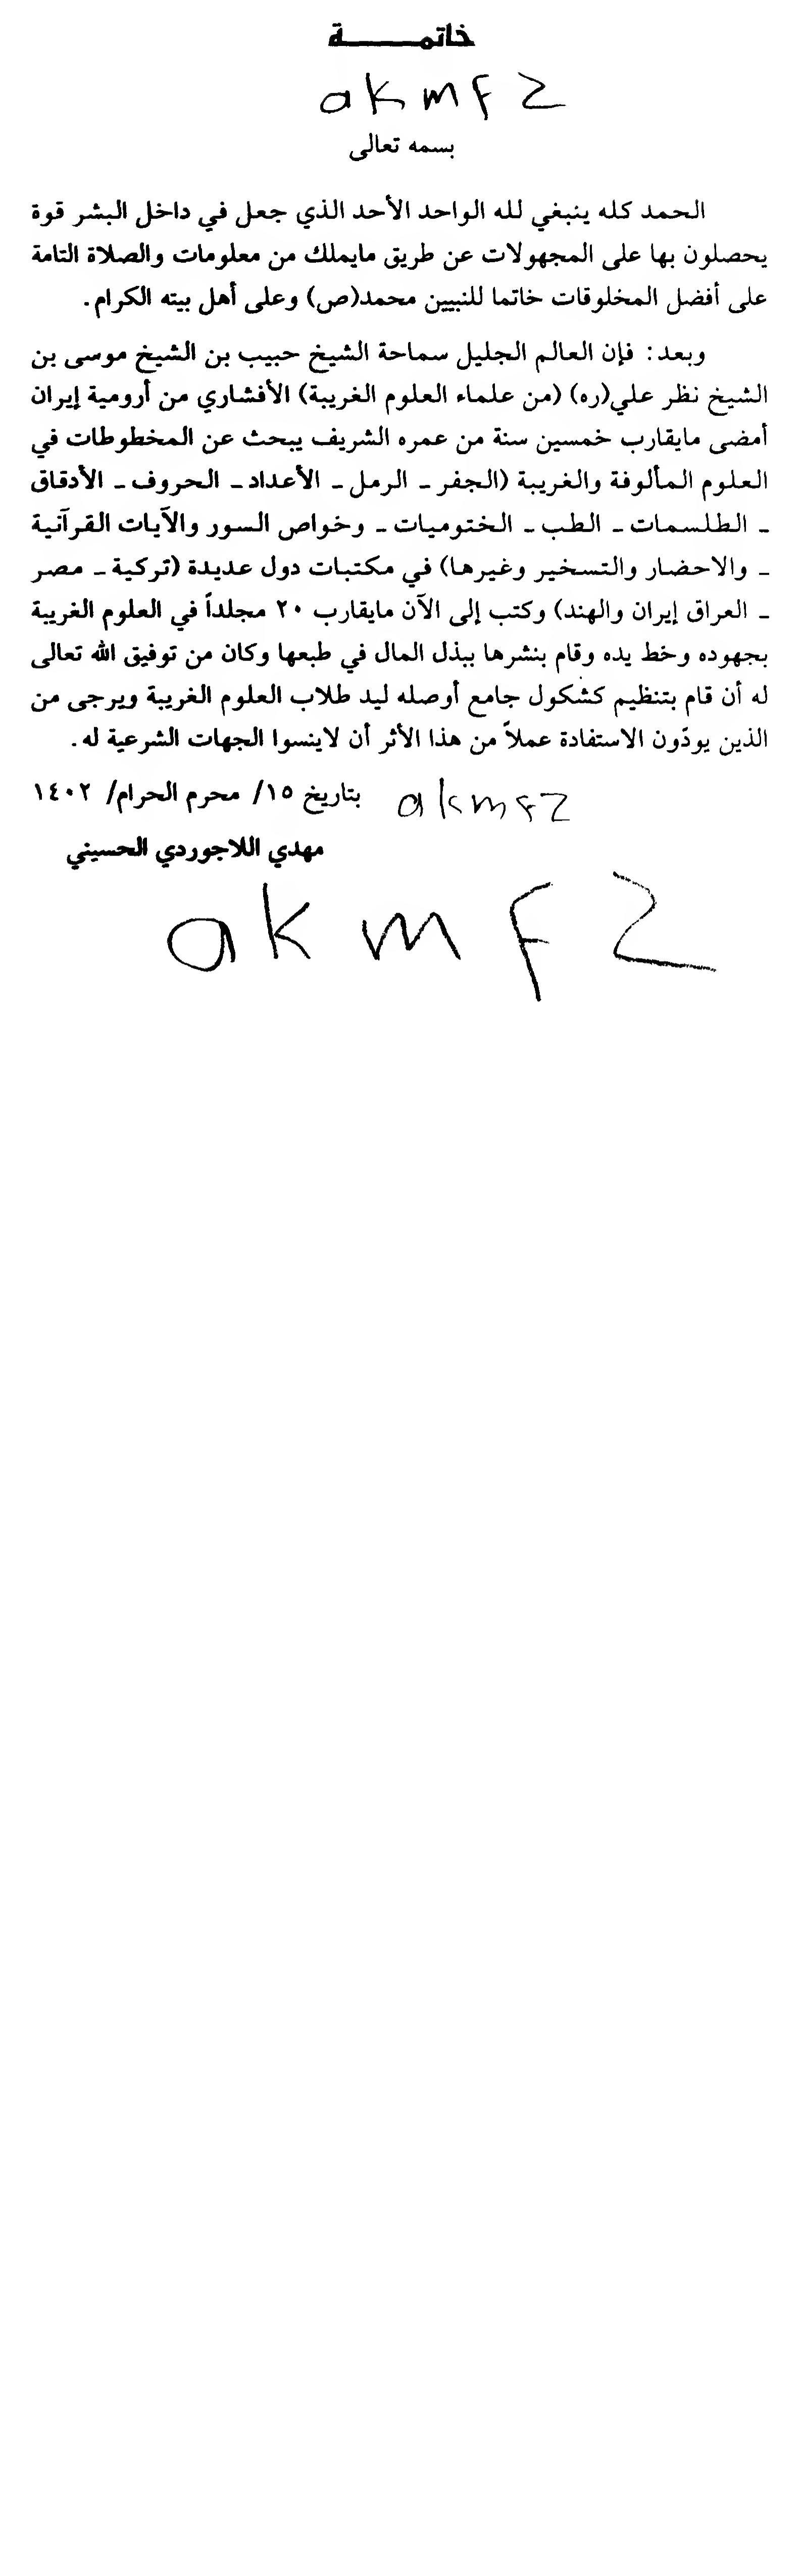 خاتمـــــة
akmfz
بسمه تعالى
الحمد كله ينبغي لله الواحد الأحد الذي جعل في داخل البشر قوة
يحصلون بها على المجهولات عن طريق مايملك من معلومات والصلاة التامة
على أفضل المخلوقات خاتما للنبيين محمد(ص) وعلى أهل بيته الكرام.
وبعد: فإن العالم الجليل سماحة الشيخ حبيب بن الشيخ موسى بن
الشيخ نظر علي(ره) (من علماء العلوم الغريبة) الأفشاري من أرومية إيران
أمضى مايقارب خمسين سنة من عمره الشريف يبحث عن المخطوطات في
العلوم المألوفة والغريبة (الجفر - الرمل - الأعداد - الحروف - الأدقاق
- الطلسمات - الطب - الختوميات - وخواص السور والآيات القرآنية
- والاحضار والتسخير وغيرها) في مكتبات دول عديدة (تركية - مصر
- العراق إيران والهند) وكتب إلى الآن مايقارب ٢٠ مجلداً في العلوم الغريبة
بجهوده وخط يده وقام بنشرها ببذل المال في طبعها وكان من توفيق الله تعالى
له أن قام بتنظيم كشكول جامع أوصله ليد طلاب العلوم الغريبة ويرجى من
الذين يودّون الاستفادة عملاً من هذا الأثر أن لاينسوا الجهات الشرعية له.
بتاريخ ١٥/ محرم الحرام/ ١٤٠٢ akmfz
مهدي اللاجوردي الحسيني
akmfz